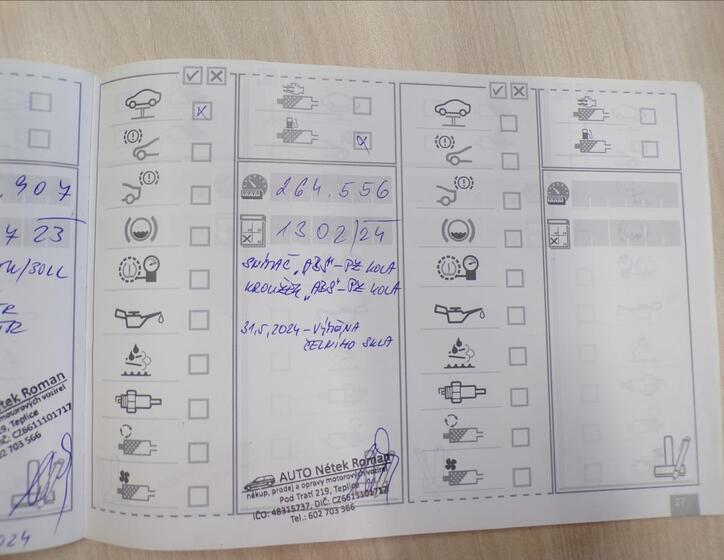 .907
7 23
264.556
13 02/24
SNÍMAČ „ABS"-PZ KOLA
KROUŽEK „ABS"-PZ KOLA
31.5.2024-VÝMĚNA
ČELNÍHO SKLA
Nétek Roman
motorových vozidel
219, Teplice
DIČ: CZ6611101717
602 703 566
024
AUTO Nétek Roman
nákup, prodej a opravy motorových vozidel
Pod Tratí 219, Teplice
IČO: 48315737, DIČ: CZ6611101717
Tel.: 602 703 566
27